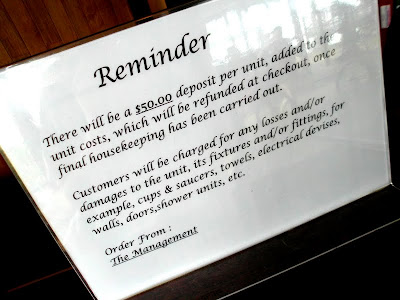 Reminder
There will be a $50.00 deposit per unit, added to the
unit costs, which will be refunded at checkout, once
final housekeeping has been carried out.
Customers will be charged for any losses and/or
damages to the unit, its fixtures and/or fittings, for
example, cups & saucers, towels, electrical devises,
walls, doors,shower units, etc.
Order From :
The Management